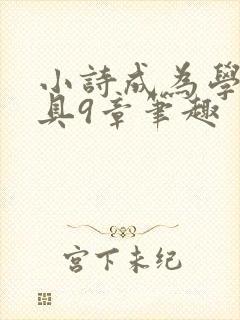 小詩成為學
具9章筆趣
宮下未纪